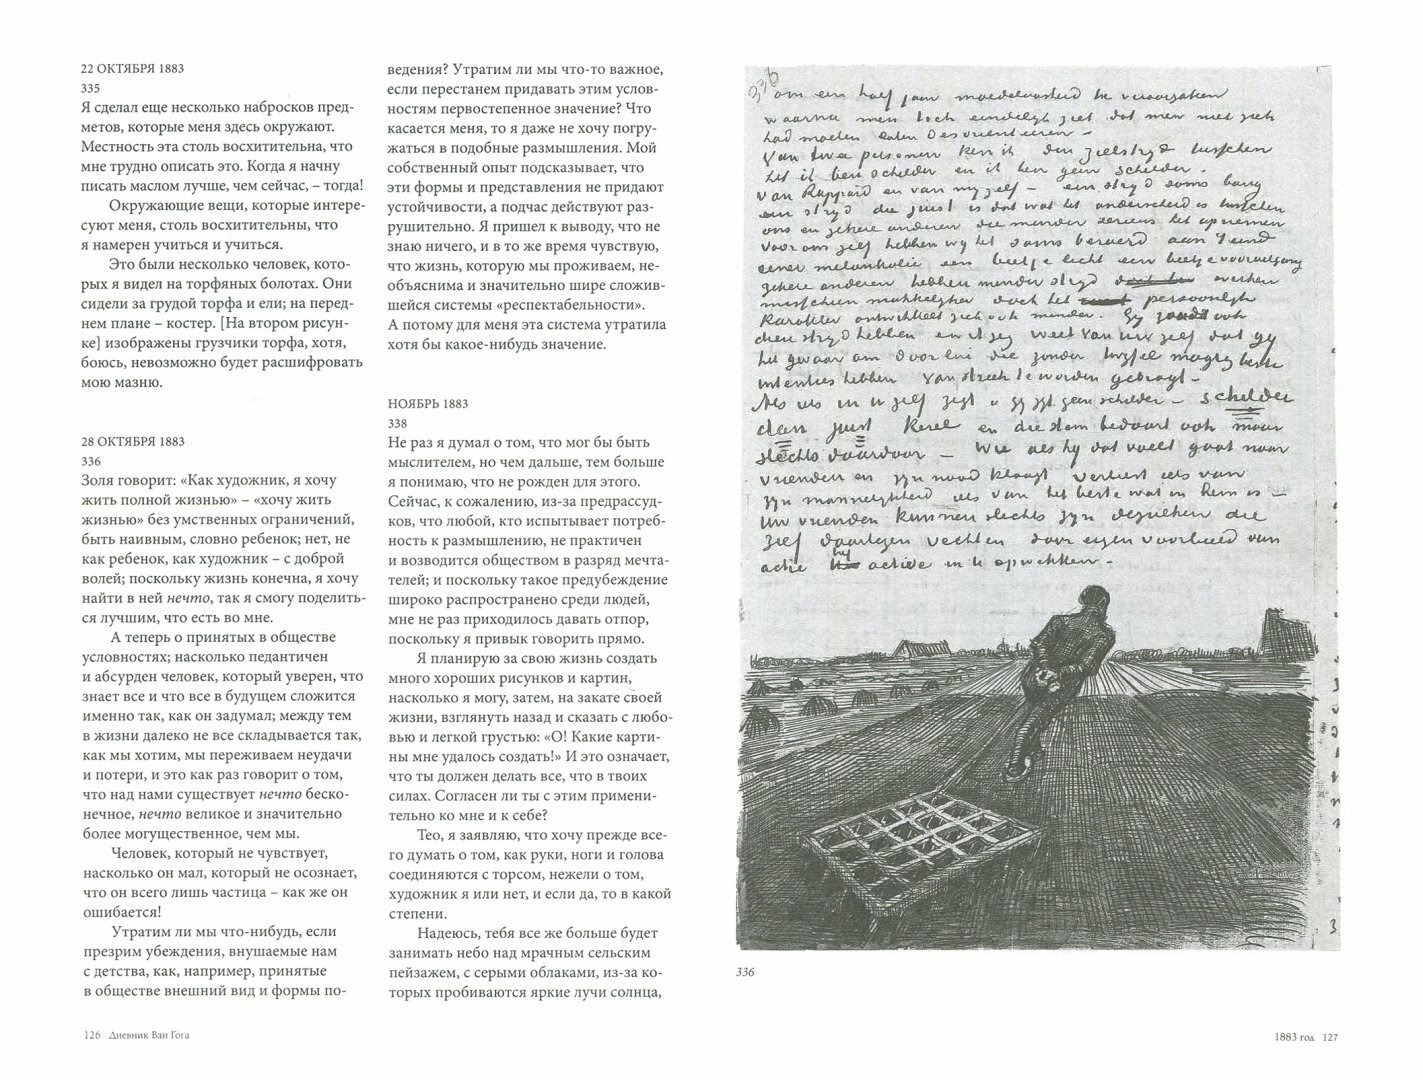 22 ОКТЯБРЯ 1883
335
Я сделал еще несколько набросков пред-
метов, которые меня здесь окружают.
Местность эта столь восхитительна, что
мне трудно описать это. Когда я начну
писать маслом лучше, чем сейчас, – тогда!
Окружающие вещи, которые интере-
суют меня, столь восхитительны, что
я намерен учиться и учиться.
Это были несколько человек, кото-
рых я видел на торфяных болотах. Они
сидели за грудой торфа и ели; на перед-
нем плане – костер. [На втором рисун-
ке] изображены грузчики торфа, хотя,
боюсь, невозможно будет расшифровать
мою мазню.
28 ОКТЯБРЯ 1883
336
Золя говорит: «Как художник, я хочу
жить полной жизнью» – «хочу жить
жизнью» без умственных ограничений,
быть наивным, словно ребенок; нет, не
как ребенок, как художник – с доброй
волей; поскольку жизнь конечна, я хочу
найти в ней нечто, так я смогу поделить-
ся лучшим, что есть во мне.
А теперь о принятых в обществе
условностях; насколько педантичен
и абсурден человек, который уверен, что
знает все и что все в будущем сложится
именно так, как он задумал; между тем
в жизни далеко не все складывается так,
как мы хотим, мы переживаем неудачи
и потери, и это как раз говорит о том,
что над нами существует нечто беско-
нечное, нечто великое и значительно
более могущественное, чем мы.
Человек, который не чувствует,
насколько он мал, который не осознает,
что он всего лишь частица – как же он
ошибается!
Утратим ли мы что-нибудь, если
презрим убеждения, внушаемые нам
с детства, как, например, принятые
в обществе внешний вид и формы по-
ведения? Утратим ли мы что-то важное,
если перестанем придавать этим услов-
ностям первостепенное значение? Что
касается меня, то я даже не хочу погру-
жаться в подобные размышления. Мой
собственный опыт подсказывает, что
эти формы и представления не придают
устойчивости, а подчас действуют раз-
рушительно. Я пришел к выводу, что не
знаю ничего, и в то же время чувствую,
что жизнь, которую мы проживаем, не-
объяснима и значительно шире сложив-
шейся системы «респектабельности».
А потому для меня эта система утратила
хотя бы какое-нибудь значение.
НОЯБРЬ 1883
338
Не раз я думал о том, что мог бы быть
мыслителем, но чем дальше, тем больше
я понимаю, что не рожден для этого.
Сейчас, к сожалению, из-за предрассуд-
ков, что любой, кто испытывает потреб-
ность к размышлению, не практичен
и возводится обществом в разряд мечта-
телей; и поскольку такое предубеждение
широко распространено среди людей,
мне не раз приходилось давать отпор,
поскольку я привык говорить прямо.
Я планирую за свою жизнь создать
много хороших рисунков и картин,
насколько я могу, затем, на закате своей
жизни, взглянуть назад и сказать с любо-
вью и легкой грустью: «О! Какие карти-
ны мне удалось создать!» И это означает,
что ты должен делать все, что в твоих
силах. Согласен ли ты с этим примени-
тельно ко мне и к себе?
Тео, я заявляю, что хочу прежде все-
го думать о том, как руки, ноги и голова
соединяются с торсом, нежели о том,
художник я или нет, и если да, то в какой
степени.
Надеюсь, тебя все же больше будет
занимать небо над мрачным сельским
пейзажем, с серыми облаками, из-за ко-
торых пробиваются яркие лучи солнца,
126 Дневник Ван Гога
336
om een half jaar moedeloosheid te veroorzaken
waarna men toch eindelijk ziet dat men niet zich
had moeten laten desorienteeren –
Van twee personen ken ik den zielstrijd tusschen
het ik ben schilder en ik ben geen schilder.
van Rappard en van mijzelf – een strijd soms bang
een strijd die juist is dat wat het onderscheid is tusschen
ons en zekere anderen die minder serieus het opnemen
voor ons zelf hebben wij het soms beroerd aan 't eind
eener melankolie een beetje licht een beetje vooruitgang
zekere anderen hebben minder strijd werken
misschien makkelijker doch het persoonlijk
karakter ontwikkelt zich ook minder. Gij zoudt ook
dien strijd hebben en ik zeg weet van uw zelf dat gij
het gevaar om door lui die zonder twijfel magtig beste
intenties hebben van streek te worden gebragt –
Als iets in U zelf zegt gij zijt geen schilder – schilder
dan juist kerel en die stem bedaart ook maar
slechts daardoor – Wie als hij dat voelt gaat naar
vrienden en zijn nood klaagt verliest iets van
zijn mannelijkheid iets van het beste wat in hem is –
Uw vrienden kunnen slechts zijn dezulken die
zelf daartegen vechten door eigen voorbeeld van
actie de actie in U opwekken –
336
1883 год 127